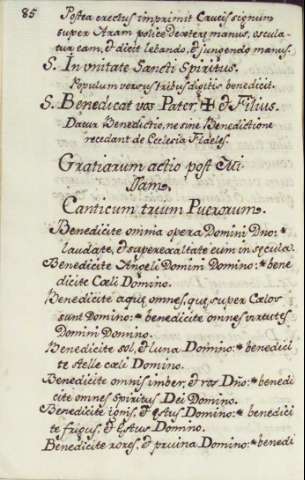 85
Postea erectus imprimit Crucis signum
super Aram police dexteræ manus, oscula-
tur eam, & dicit levando, & jungendo manus.
S. In unitate Sancti Spiritus.
Populum versus tribus digitis benedicit.
S. Benedicat vos Pater, ✠ & Filius.
Datur Benedictio, ne sine Benedictione
recedant de Ecclesia Fideles.
Gratiarum actio post Mi-
ssam.
Canticum trium Puerorum.
Benedicite omnia opera Domini Dno:*
laudate, & superexaltate eum in sæcula.
Benedicite Angeli Domini Domino:* bene
dicite Cœli Domino.
Benedicite aquæ omnes, quæ super Cœlos
sunt Domino:* benedicite omnes virtutes
Domini Domino.
Benedicite sol, & luna Domino:* benedici
te stellæ cœli Domino.
Benedicite omnis imber, & ros Dño:* benedi
cite omnes spiritus Dei Domino.
Benedicite ignis, & æstus Domino:* benedici
te frigus, & æstus Domino.
Benedicite rores, & pruina Domino:* benedi